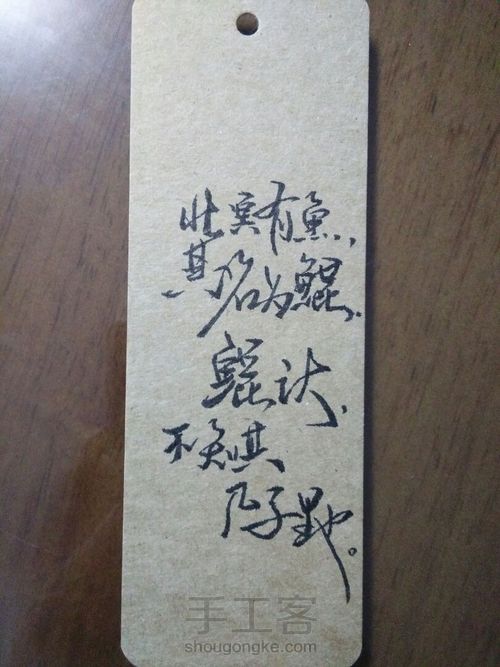 北冥有鱼,
其名为鲲.
鲲之大,
不知其
几千里也。
手工客
shougongke.com